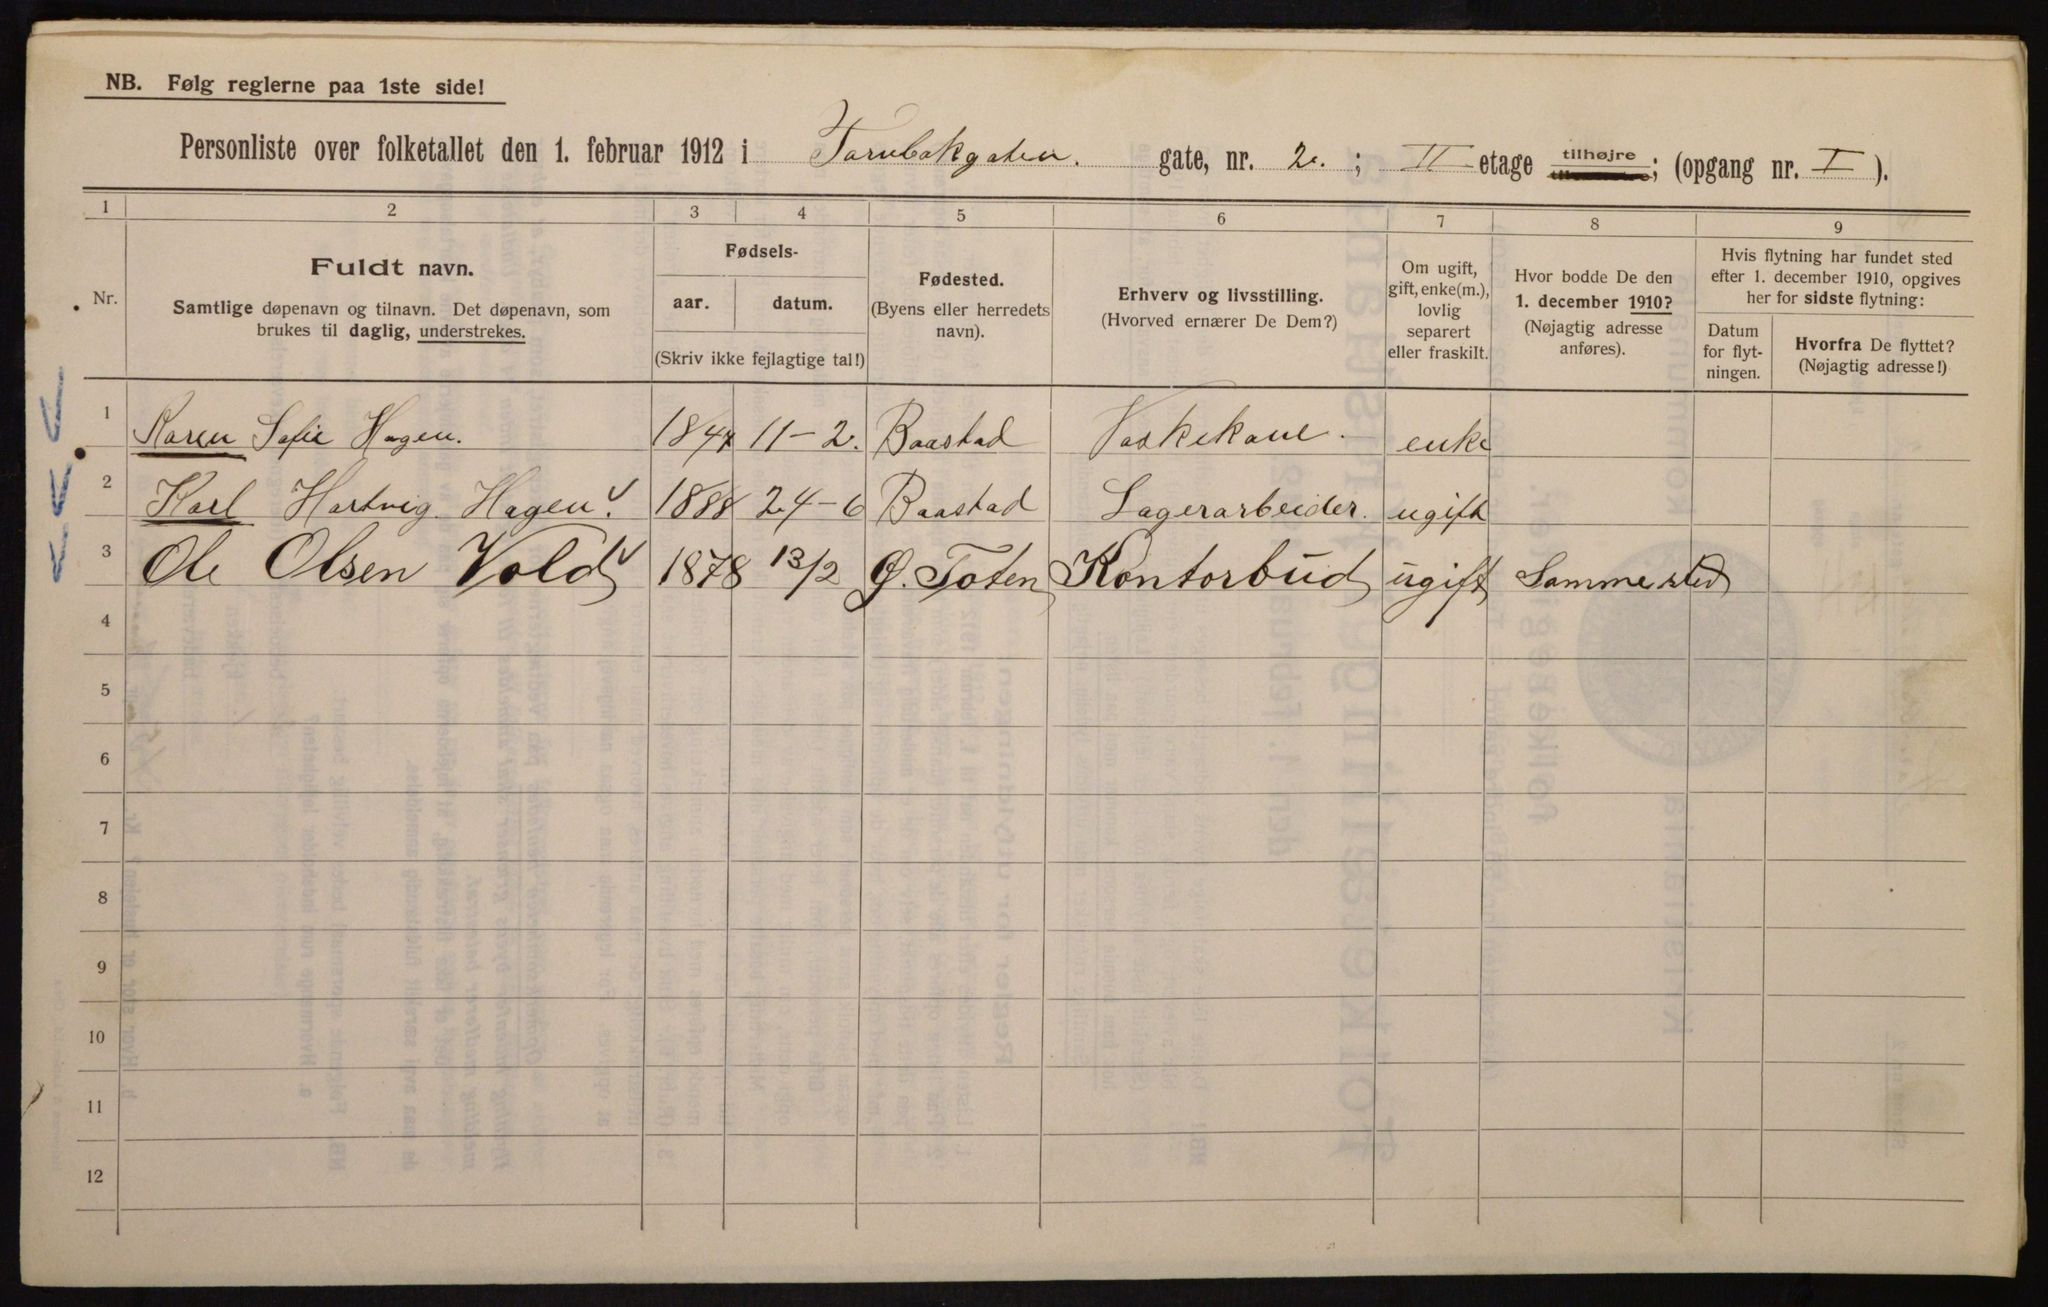 NB. Følg reglerne paa 1ste side!
Personliste over folketallet den 1. februar 1912 i Tarubakgaten. gate, nr. 2. ; II etage tilhøjre ; (opgang nr. I ).
1 2 3 4 5 6 7 8 9
Nr.
Fuldt navn.
Samtlige døpenavn og tilnavn. Det døpenavn, som
brukes til daglig, understrekes.
Fødsels-
aar. datum.
(Skriv ikke fejlagtige tal!)
Fødested.
(Byens eller herredets
navn).
Erhverv og livsstilling.
(Hvorved ernærer De Dem?)
Om ugift,
gift, enke(m.),
lovlig
separert
eller fraskilt.
Hvor bodde De den
1. december 1910?
(Nøjagtig adresse
anføres).
Hvis flytning har fundet sted
efter 1. december 1910, opgives
her for sidste flytning:
Datum
for flyt-
ningen.
Hvorfra De flyttet?
(Nøjagtig adresse!)
1 Karen Sofie Hagen. 1844 11-2. Baastad Vaskekone. enke
2 Karl Hartvig Hagen. 1888 24-6 Baastad Lagerarbeider. ugift
3 Ole Olsen Vold 1878 13/2 Ø. Toten Kontorbud ugift Samme sted
4
5
6
7
8
9
10
11
12